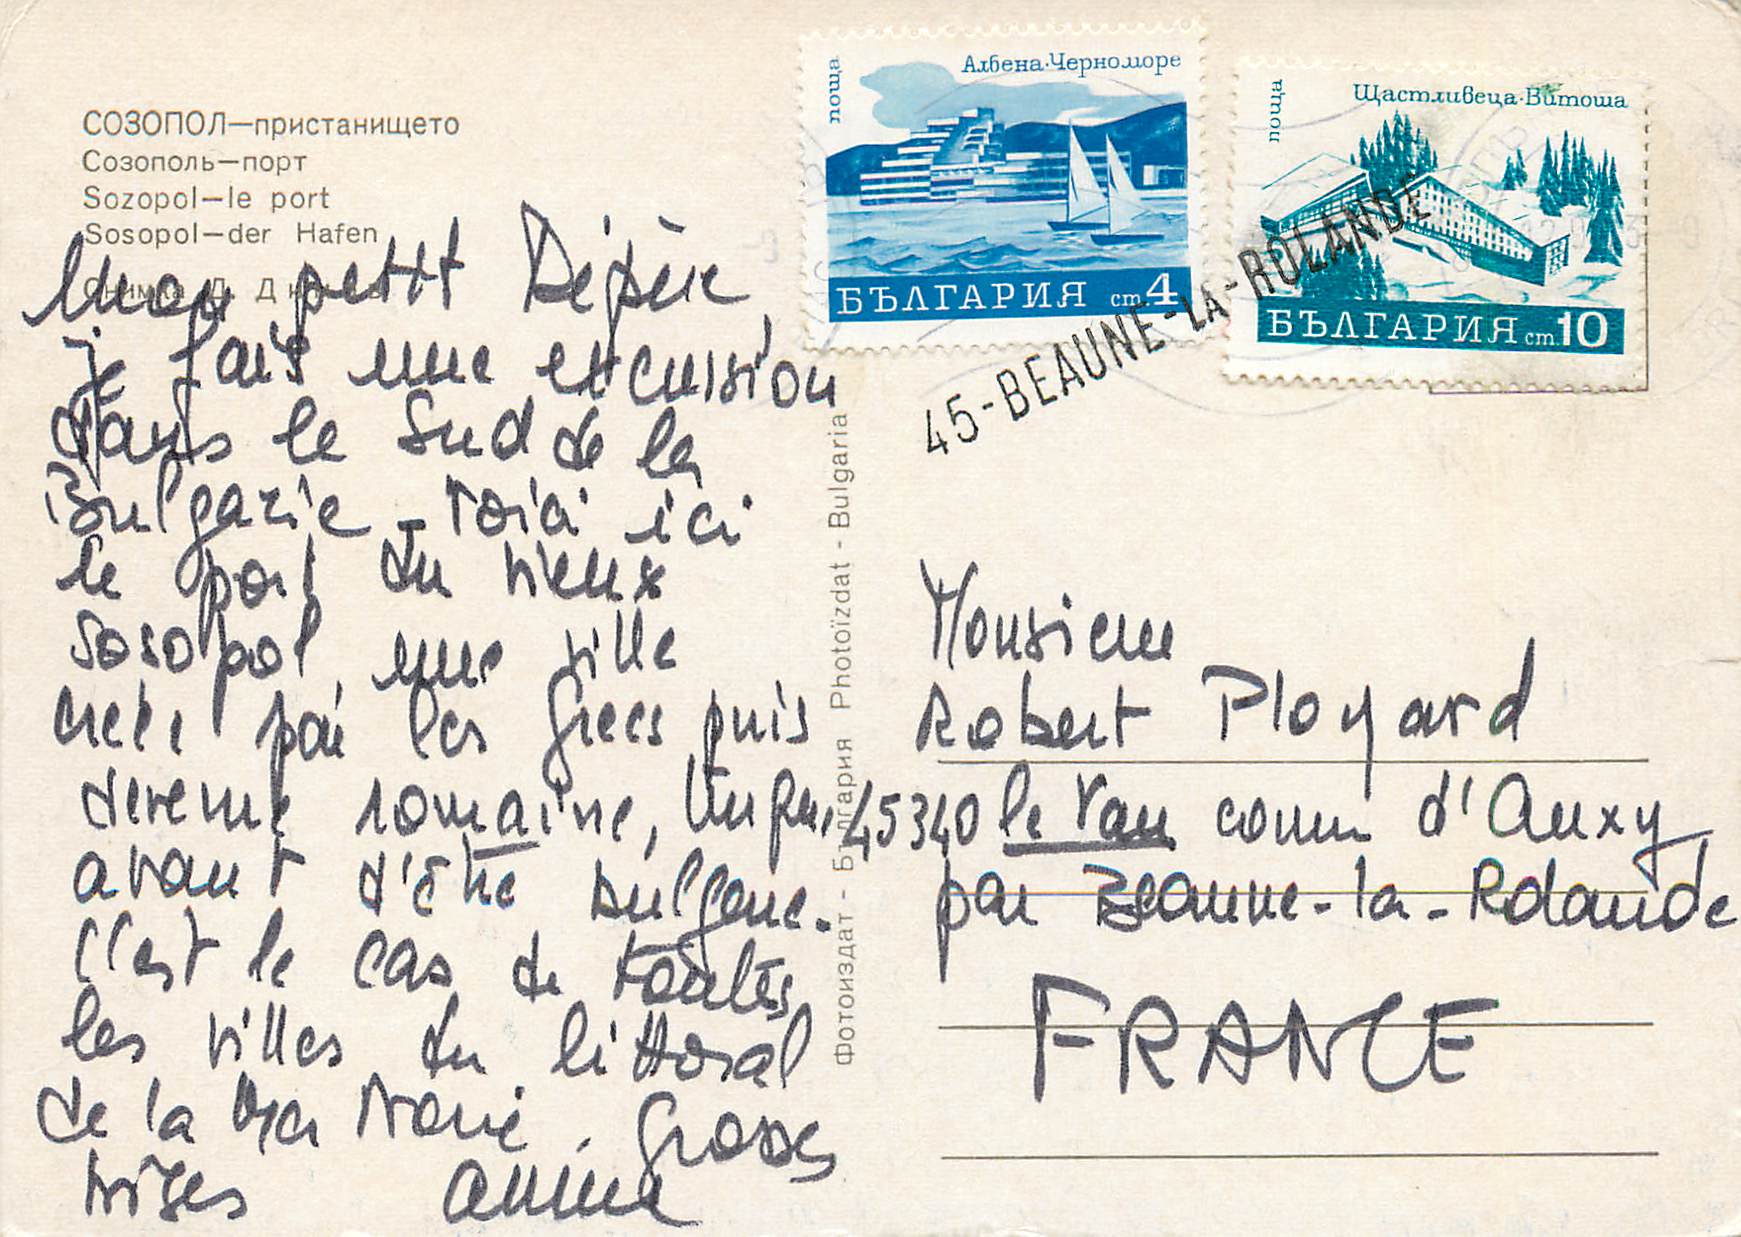 СОЗОПОЛ—пристанището
Созополь—порт
Sozopol—le port
Sosopol—der Hafen
Снимка Д.
Mon petit Pépère
je fais une excursion
dans le Sud de la
Bulgarie - Voici ici
le port du vieux
Sosopol, une ville
créée par les Grecs puis
devenue romaine,
avant d'être bulgare.
C'est le cas de toutes
les villes du littoral
de la Mer Noire. Grosses
bises Annie
Фотоиздат - България Photoïzdat - Bulgaria
поща
Албена·Черноморе
БЪЛГАРИЯ ст 4
поща
Щастливеца·Витоша
БЪЛГАРИЯ ст. 10
45-BEAUNE-LA-ROLANDE
Monsieur
Robert Ployard
45340 le Vau comm d'Auxy
par Beaune-la-Rolande
FRANCE